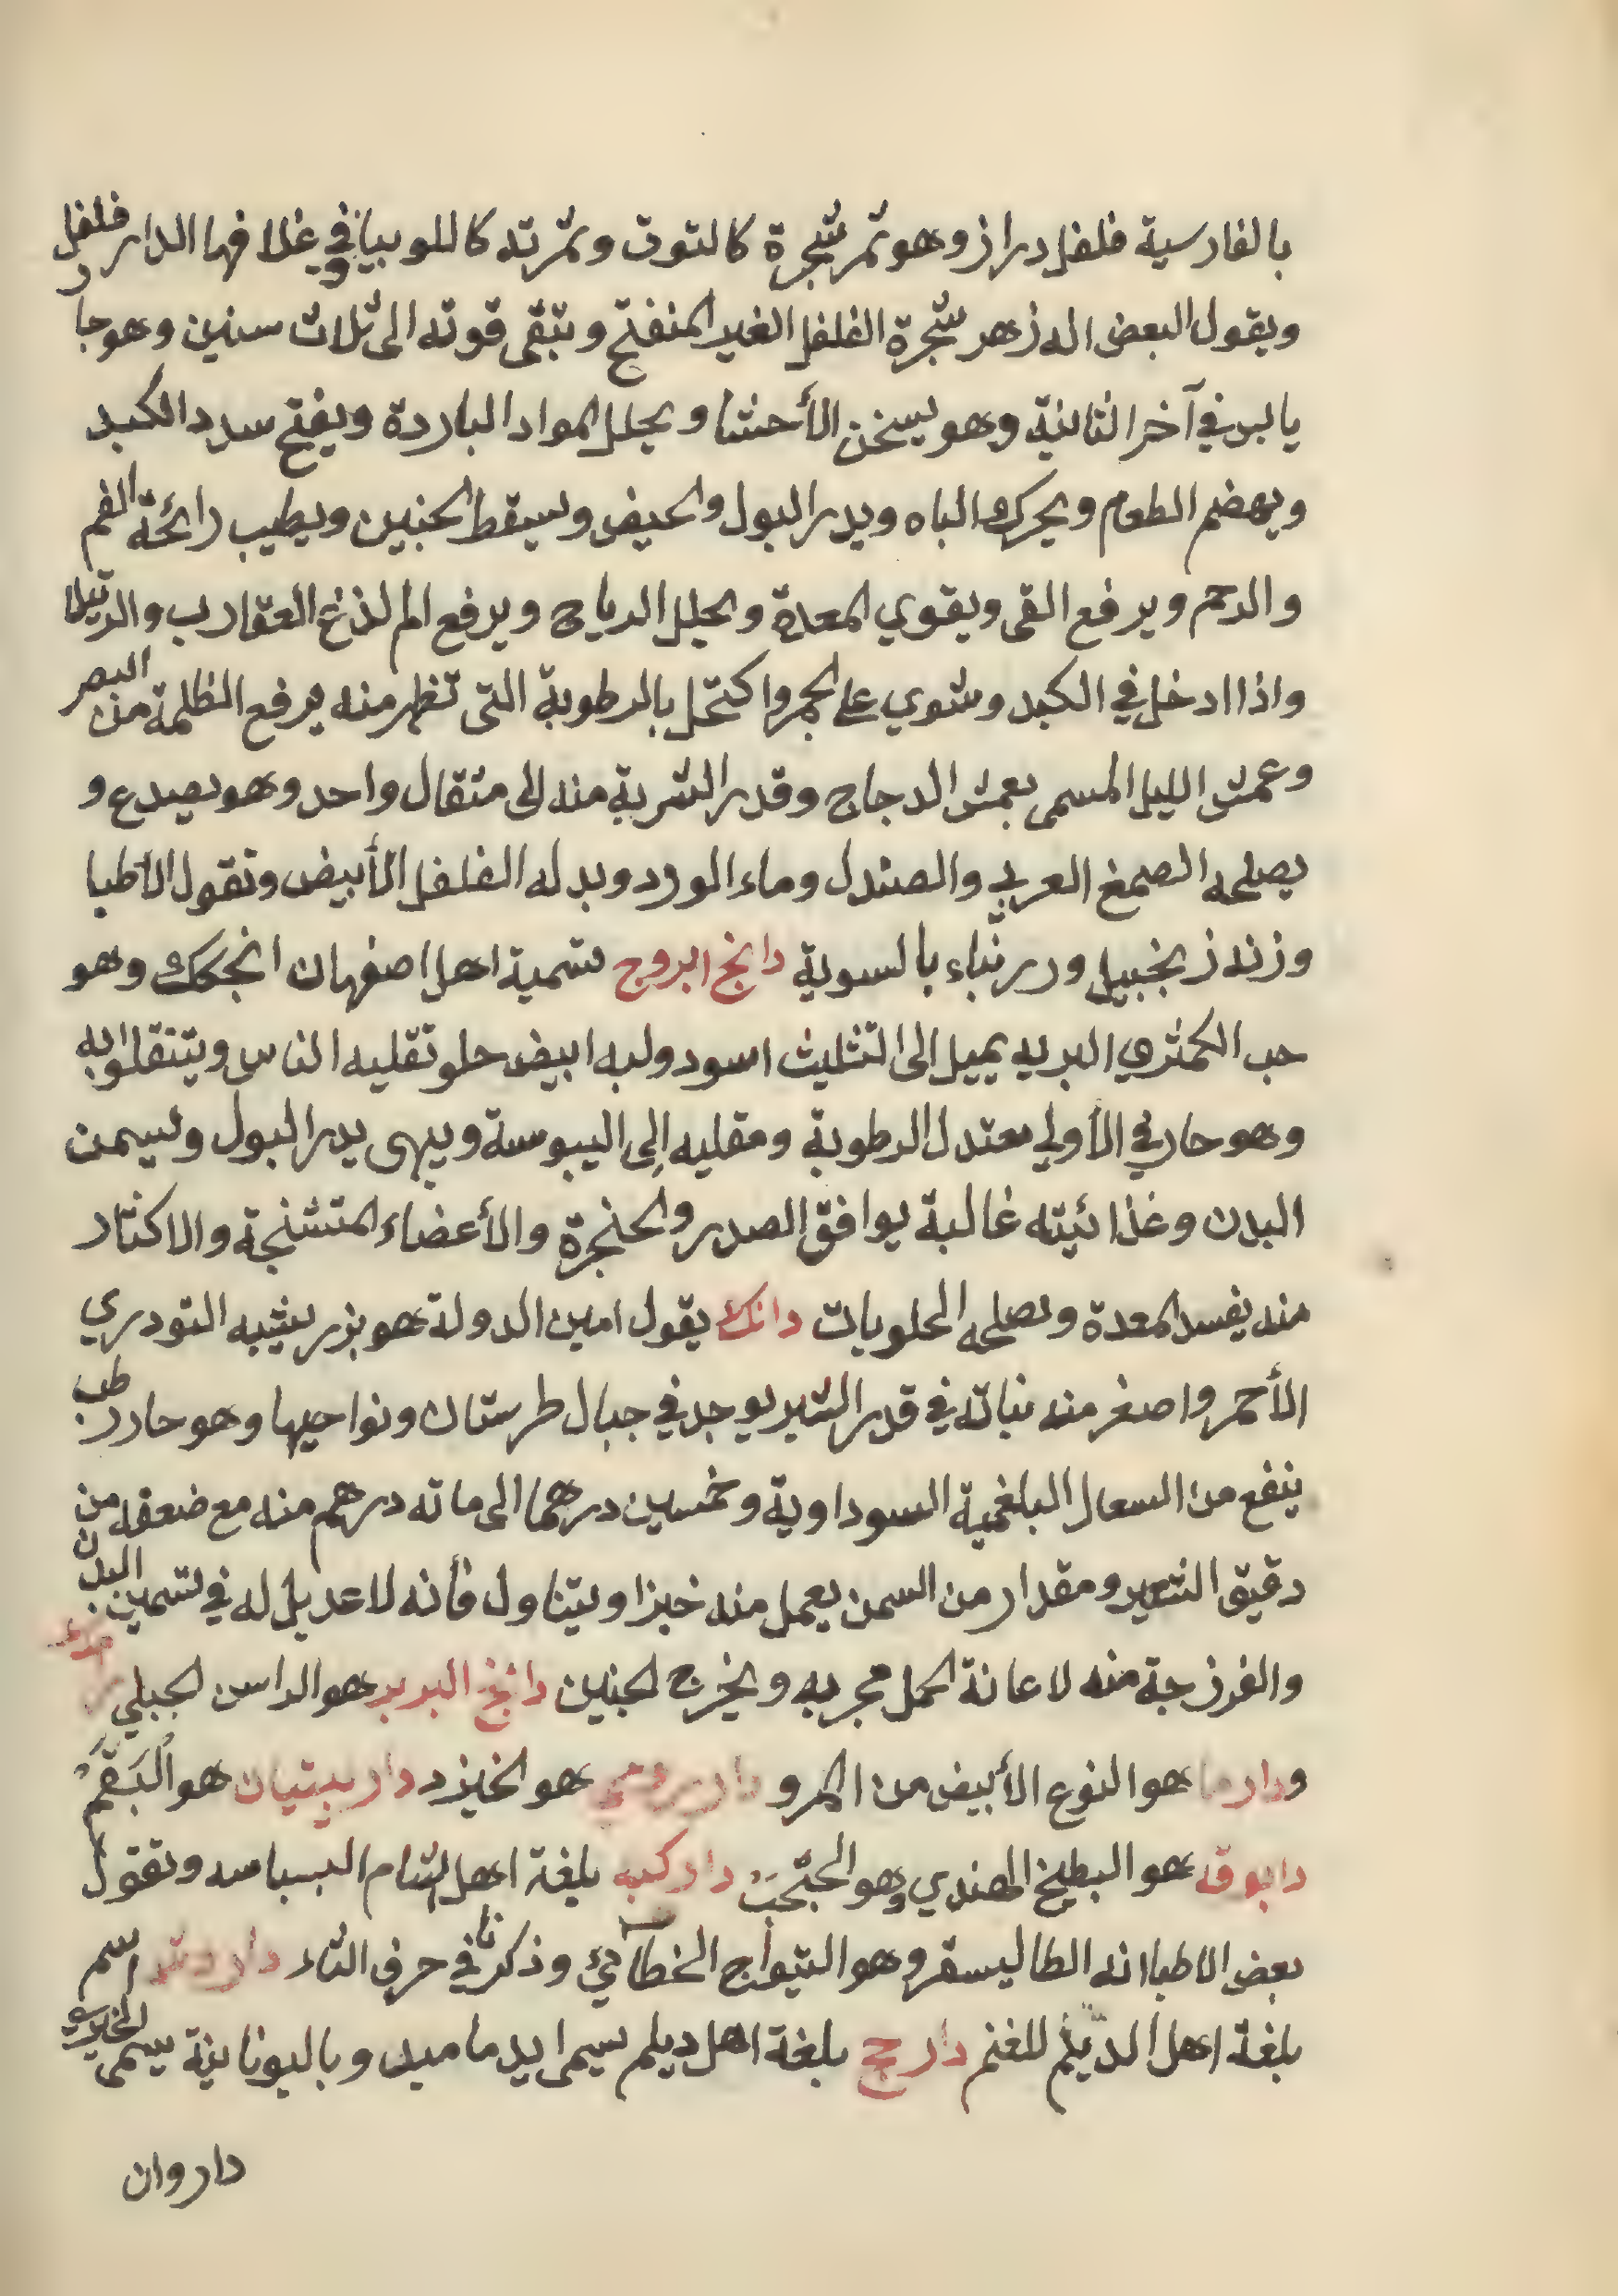 بالفارسية فلفل دراز وهو ثمر شجرة كالتوت وثمرته كاللوبيا وفي غلافها الدار فلفل
ويقول البعض انه زهر شجرة الفلفل الغير المنفتح وتبقى قوته الى ثلاث سنين وهو حار
يابس في آخر الثانية وهو يسخن الأحشا ويحلل المواد الباردة ويفتح سدد الكبد
ويهضم الطعام ويحرك الباه ويدر البول والحيض ويسقط الجنين ويطيب رائحة الفم
والرحم ويرفع القى ويقوي المعدة ويحلل الرياح ويرفع الم لذغ العقارب والرتيلا
واذا ادخل في الكبد وشوي على الجمر واكتحل بالرطوبة التى تظهر منه يرفع الظلمة من البصر
وعمش الليل المسمى بعمش الدجاج وقدر الشربة منه الى مثقال واحد وهو يصدع و
يصلحه الصمغ العربي والصندل وماء الورد وبدله الفلفل الأبيض وتقول الأطبا
وزنه زنجبيل وزرنباء بالسوية دانج ابروج تسمية اهل اصفهان انجكك وهو
حب الكمثري البريه يميل الى التثليث اسود ولبه ابيض حلو تقليه الناس ويتنقلوا به
وهو حار في الأولي معتدل الرطوبة ومقليه إلى اليبوسة ويبهى يدر البول ويسمن
البدن وغذائيته غالبة يوافق الصدر والحنجرة والأعضاء المتشنجة والاكثار
منه يفسد المعدة ويصلحه الحلويات دانك يقول امين الدولة هو بزر يشبه التودري
الأحمر واصغر منه نباته في قدر الشبر يوجد في جبال طرستان ونواحيها وهو حار رطب
ينفع من السعال البلغمية السوداوية وخمسين درهما الى ماته درهم منه مع ضعفه من
دقيق الشعير ومقدار من السمن يعمل منه خبزا ويتناول فأنه لا عديل له في تسمين البدن
والفرزجة منه لاعانة الحمل مجربه ويخرج الجنين دانج البربر هو الراسن الجبلي
ودارما هو النوع الأبيض من المرو هو الخيزر دار بيتيان هو البَقَّمْ
دابوق هو البطيخ الهندي وهو الحبحب دار كسه بلغة اهل الشام البسباسه وتقول
بعض الاطبا انه الطاليسقر وهو التيواج الخطائي وذكرنا في حرف التاء اسم
بلغة اهل الديلم للغنم دارح بلغة اهل ديلم سيمى ايدماميد وباليونانية يسمى
داروان